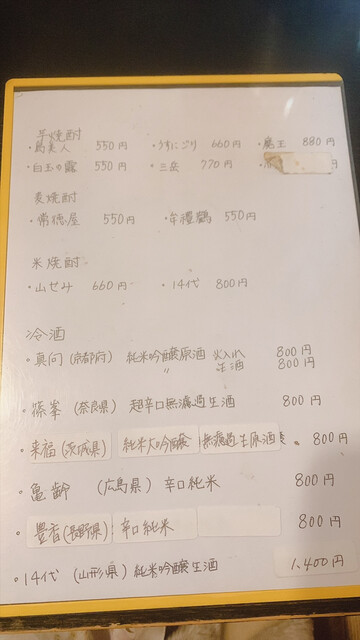 芋焼酎
・島美人 550円 ・うすにごり 660円 ・魔王 880円
・白玉の露 550円 ・三岳 770円
麦焼酎
・常徳屋 550円 ・牟禮鶴 550円
米焼酎
・山せみ 660円 ・14代 800円
冷酒
・真向(京都府) 純米吟醸原酒 火入れ 800円
〃 生酒 800円
・篠峯(奈良県) 超辛口無濾過生酒 800円
・来福(茨城県) 純米大吟醸 無濾過生原酒 800円
・亀齢 (広島県) 辛口純米 800円
・豊香(長野県) 辛口純米 800円
・14代 (山形県) 純米吟醸生酒 1,400円